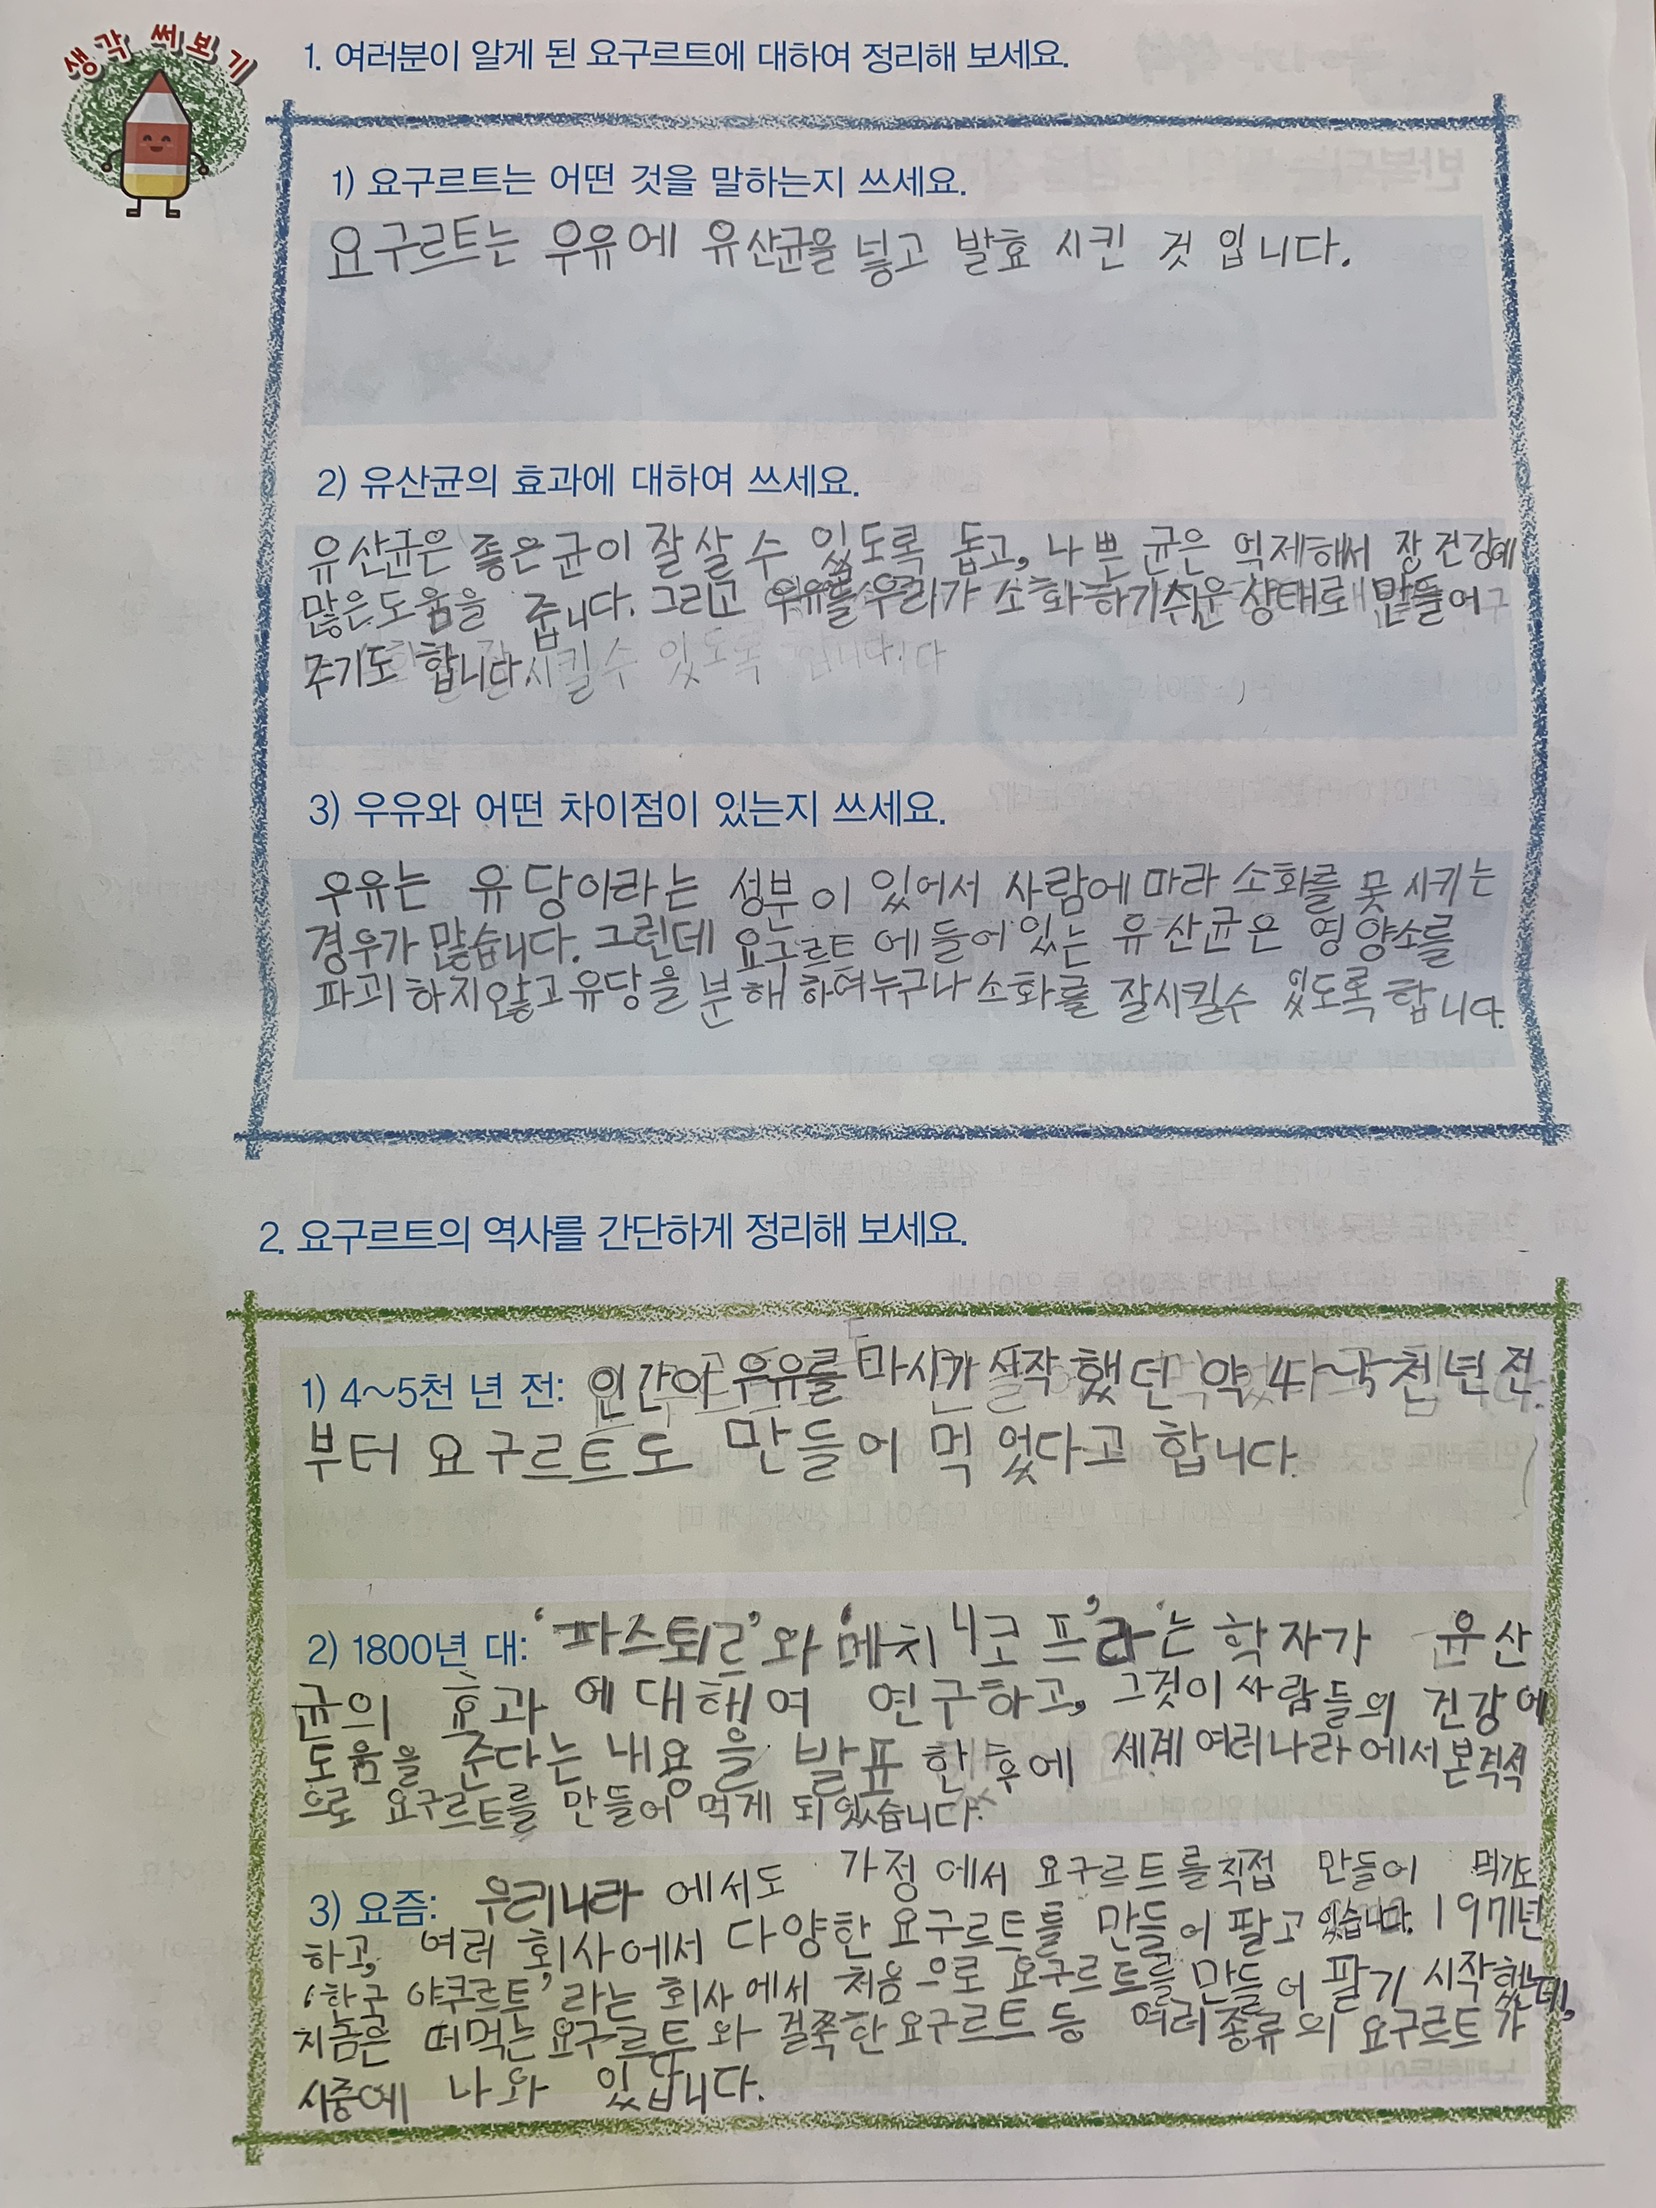 생각 써보기
1. 여러분이 알게 된 요구르트에 대하여 정리해 보세요.
1) 요구르트는 어떤 것을 말하는지 쓰세요.
요구르트는 우유에 유산균을 넣고 발효 시킨 것 입니다.
2) 유산균의 효과에 대하여 쓰세요.
유산균은 좋은균이 잘 살 수 있도록 돕고, 나쁜 균은 억제해서 장 건강에
많은도움을 줍니다. 그리고 우유를 우리가 소화하기 쉬운 상태로 만들어
주기도 합니다.
3) 우유와 어떤 차이점이 있는지 쓰세요.
우유는 유당이라는 성분이 있어서 사람에 따라 소화를 못 시키는
경우가 많습니다. 그런데 요구르트에 들어있는 유산균은 영양소를
파괴하지않고 유당을 분해하여 누구나 소화를 잘시킬수 있도록 합니다.
2. 요구르트의 역사를 간단하게 정리해 보세요.
1) 4~5천 년 전: 인간이 우유를 마시기 시작 했던 약 4~5천년 전
부터 요구르트도 만들어 먹었다고 합니다.
2) 1800년 대: '파스퇴르'와 '메치니코프'라는 학자가 유산
균의 효과에 대해여 연구하고, 그것이 사람들의 건강에
도움을 준다는 내용을 발표한 후에 세계 여러나라에서 본격적
으로 요구르트를 만들어 먹게 되었습니다.
3) 요즘: 우리나라에서도 가정에서 요구르트를 직접 만들어 먹기도
하고, 여러 회사에서 다양한 요구르트를 만들어 팔고 있습니다. 1971년
'한국 야쿠르트'라는 회사에서 처음으로 요구르트를 만들어 팔기 시작했는데,
지금은 떠먹는 요구르트와 걸쭉한 요구르트 등 여러종류의 요구르트가
시중에 나와 있습니다.